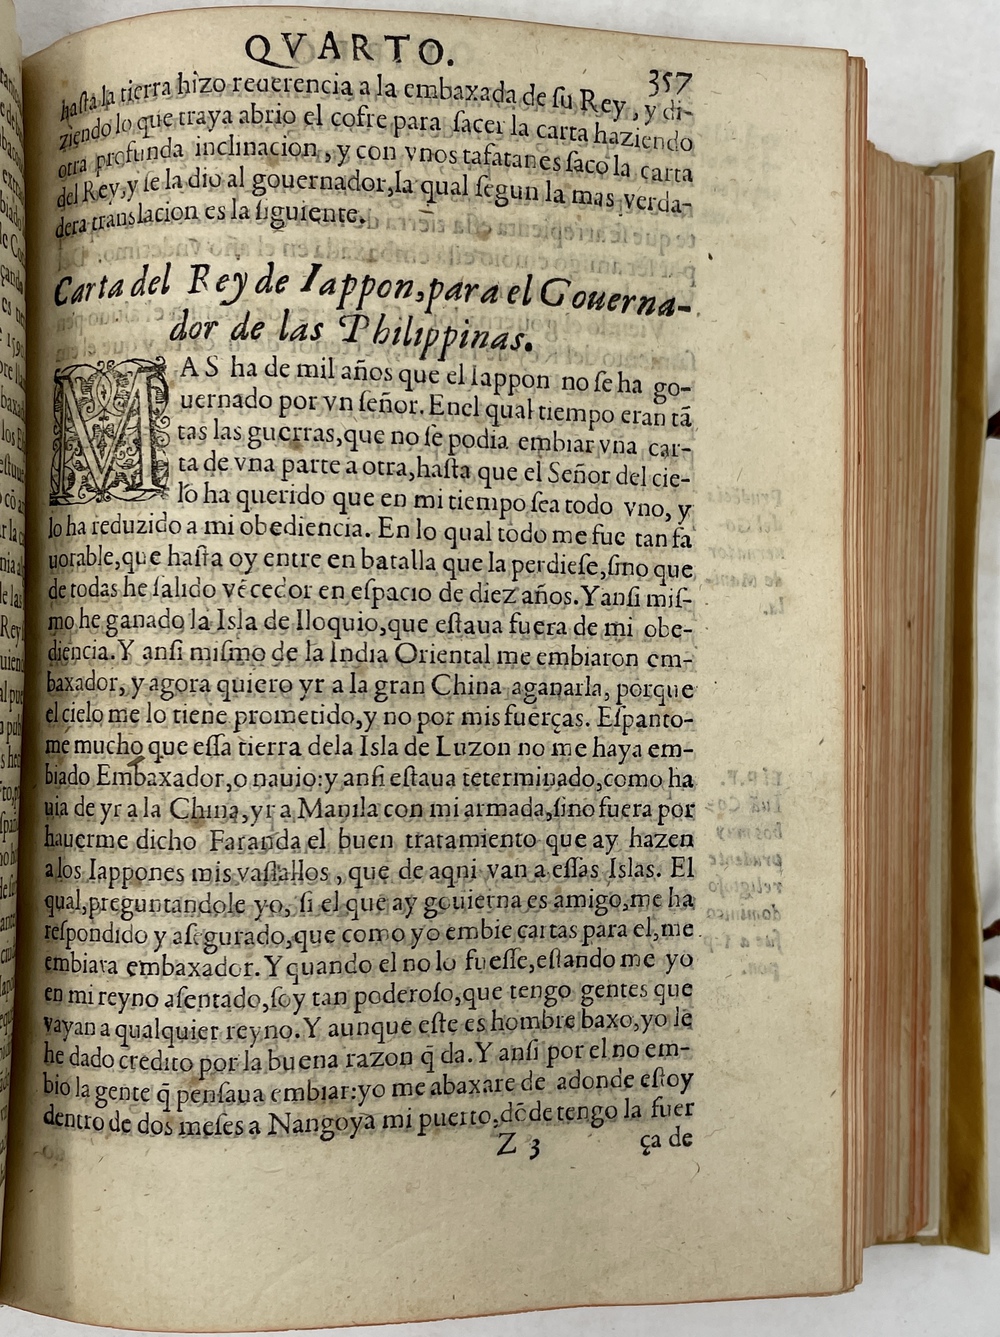 QVARTO.
357
hasta la tierra hizo reuerencia a la embaxada de su Rey, y di-
ziendo lo que traya abrio el cofre para sacer la carta haziendo
otra profunda inclinacion, y con vnos tafatanes saco la carta
del Rey, y se la dio al gouernador, la qual segun la mas verda-
dera translacion es la siguiente.
Carta del Rey de Iappon, para el Gouerna-
dor de las Philippinas.
MAS ha de mil años que el Iappon no se ha go-
uernado por vn señor. Enel qual tiempo eran tã
tas las guerras, que no se podia embiar vna car-
ta de vna parte a otra, hasta que el Señor del cie-
lo ha querido que en mi tiempo sea todo vno, y
lo ha reduzido a mi obediencia. En lo qual todo me fue tan fa
uorable, que hasta oy entre en batalla que la perdiese, sino que
de todas he salido vẽcedor en espacio de diez años. Y ansi mis-
mo he ganado la Isla de lloquio, que estaua fuera de mi obe-
diencia. Y ansi mismo de la India Oriental me embiaron em-
baxador, y agora quiero yr a la gran China aganarla, porque
el cielo me lo tiene prometido, y no por mis fuerças. Espanto-
me mucho que essa tierra dela Isla de Luzon no me haya em-
biado Embaxador, o nauio: y ansi estaua teterminado, como ha
uia de yr a la China, yr a Manila con mi armada, sino fuera por
hauerme dicho Faranda el buen tratamiento que ay hazen
a los Iappones mis vassallos, que de aqni van a essas Islas. El
qual, preguntandole yo, si el que ay gouierna es amigo, me ha
respondido y asegurado, que como yo embie cartas para el, me
embiara embaxador. Y quando el no lo fuesse, estando me yo
en mi reyno asentado, soy tan poderoso, que tengo gentes que
vayan a qualquier reyno. Y aunque este es hombre baxo, yo le
he dado credito por la buena razon q̃ da. Y ansi por el no em-
bio la gente q̃ pensaua embiar: yo me abaxare de adonde estoy
dentro de dos meses a Nangoya mi puerto, dõde tengo la fuer
Z 3
ça de